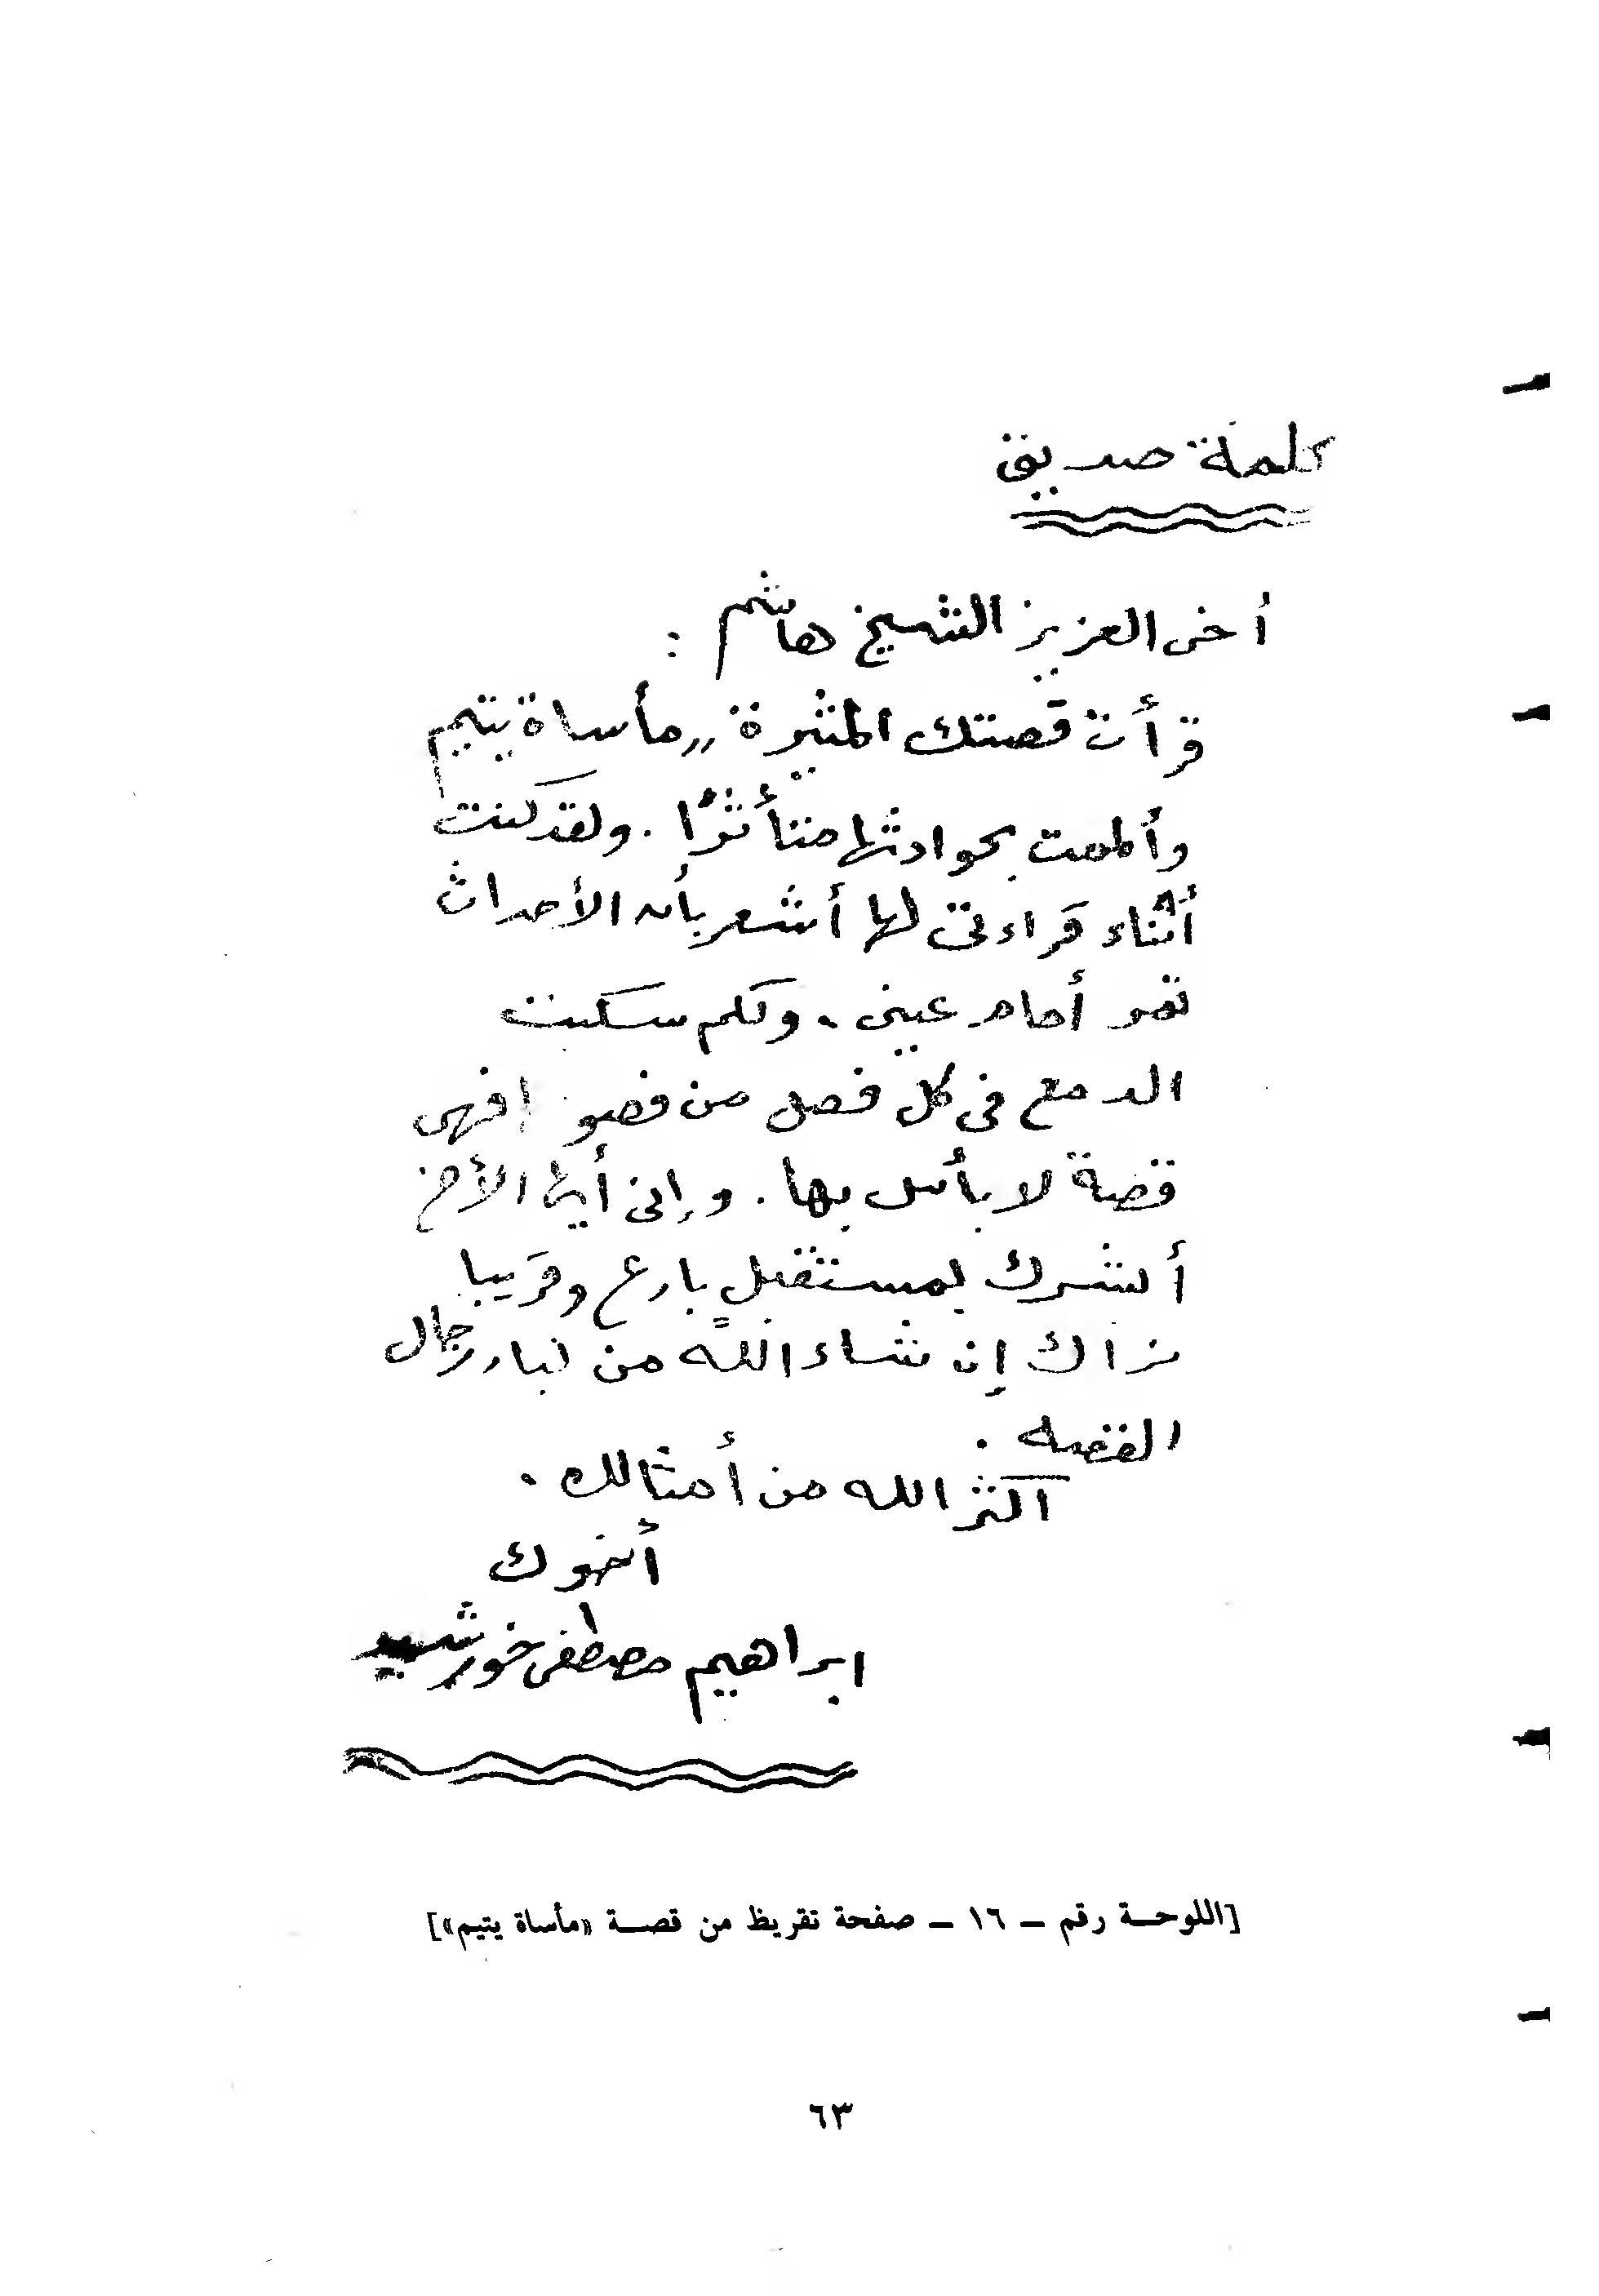 كلمة صديق
أخى العزيز الشيخ هاشم :
قرأت قصتك المثيرة „مأساة يتيم
وألممت بحوادثها متأثرًا . ولقد كنت
أثناء قراءتى لها أشعر بأن الأحداث
تمر أمام عينى . ولكم سكبت
الدمع فى كل فصل من فصو افهى
قصة لا بأس بها . وإنى أيها الأخ
أبشرك بمستقبلٍ بارع وقريبا
نراك إن شاء الله من كبار رجال
القصه .
اكثر الله من أمثالك .
أخوك
ابراهيم مصطفى خورشيد
[اللوحـة رقم – ١٦ – صفحة تقريظ من قصـة «مأساة يتيم»]
٦٣